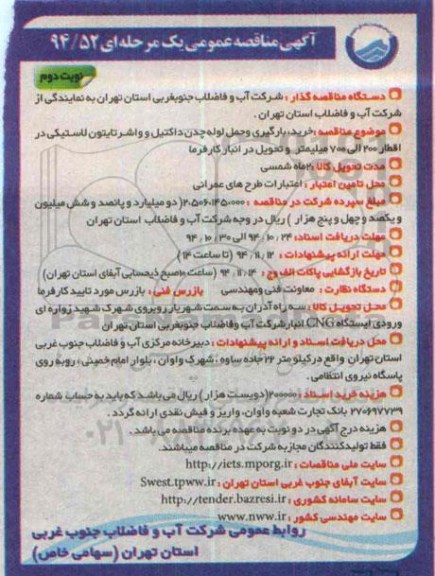 آگهی مناقصه عمومی یک مرحله ای ۹۴/۵۲
نوبت دوم
دستگاه مناقصه گذار : شرکت آب و فاضلاب جنوبغربی استان تهران به نمایندگی از
شرکت آب و فاضلاب استان تهران .
موضوع مناقصه :خرید، بارگیری وحمل لوله چدن داکتیل و واشر تایتون لاستیکی در
اقطار ۲۰۰ الی ۷۰۰ میلیمتر و تحویل در انبار کارفرما
مدت تحویل کالا :۲ماه شمسی
محل تامین اعتبار : اعتبارات طرح های عمرانی
مبلغ سپرده شرکت در مناقصه : ۲.۵۰۶.۱۴۵.۰۰۰( دو میلیارد و پانصد و شش میلیون
و یکصد و چهل و پنج هزار ) ریال در وجه شرکت آب و فاضلاب استان تهران
مهلت دریافت اسناد: ۲۴ / ۱۰ / ۹۴ الی ۳۰ / ۱۰ / ۹۴
مهلت ارائه پیشنهادات : ۱۲ / ۱۱ / ۹۴ (تا ساعت ۱۴ )
تاریخ بازگشایی پاکات الف و ج : ۱۴ / ۱۱ / ۹۴ (ساعت ۱۰صبح ذیحسابی آبفای استان تهران)
دستگاه نظارت : معاونت فنی ومهندسی بازرس فنی : بازرس مورد تایید کارفرما
محل تحویل کالا : سه راه آدران به سمت شهریار روبروی شهرک شهید زواره ای
ورودی ایستگاه CNG انبار شرکت آب وفاضلاب جنوبغربی استان تهران
محل دریافت اسناد و ارائه پیشنهادات : دبیرخانه مرکزی آب و فاضلاب جنوب غربی
استان تهران واقع در کیلو متر ۲۲ جاده ساوه ،شهرک واوان ، بلوار امام خمینی ، روبه روی
پاسگاه نیروی انتظامی .
هزینه خرید اسناد :۲۰۰۰۰۰(دویست هزار) ریال می باشد که باید به حساب شماره
۲۷۰۶۹۷۷۳۹ بانک تجارت شعبه واوان، واریز و فیش نقدی ارائه گردد .
هزینه درج آگهی در دو نوبت به عهده برنده مناقصه می باشد.
فقط تولیدکنندگان مجاز به شرکت در مناقصه میباشند.
سایت ملی مناقصات : http://iets.mporg.ir
سایت آبفای جنوب غربی استان تهران : Swest.tpww.ir
سایت سامانه کشوری : http://tender.bazresi.ir
سایت مهندسی کشور : www.nww.ir
روابط عمومی شرکت آب و فاضلاب جنوب غربی
استان تهران (سهامی خاص)